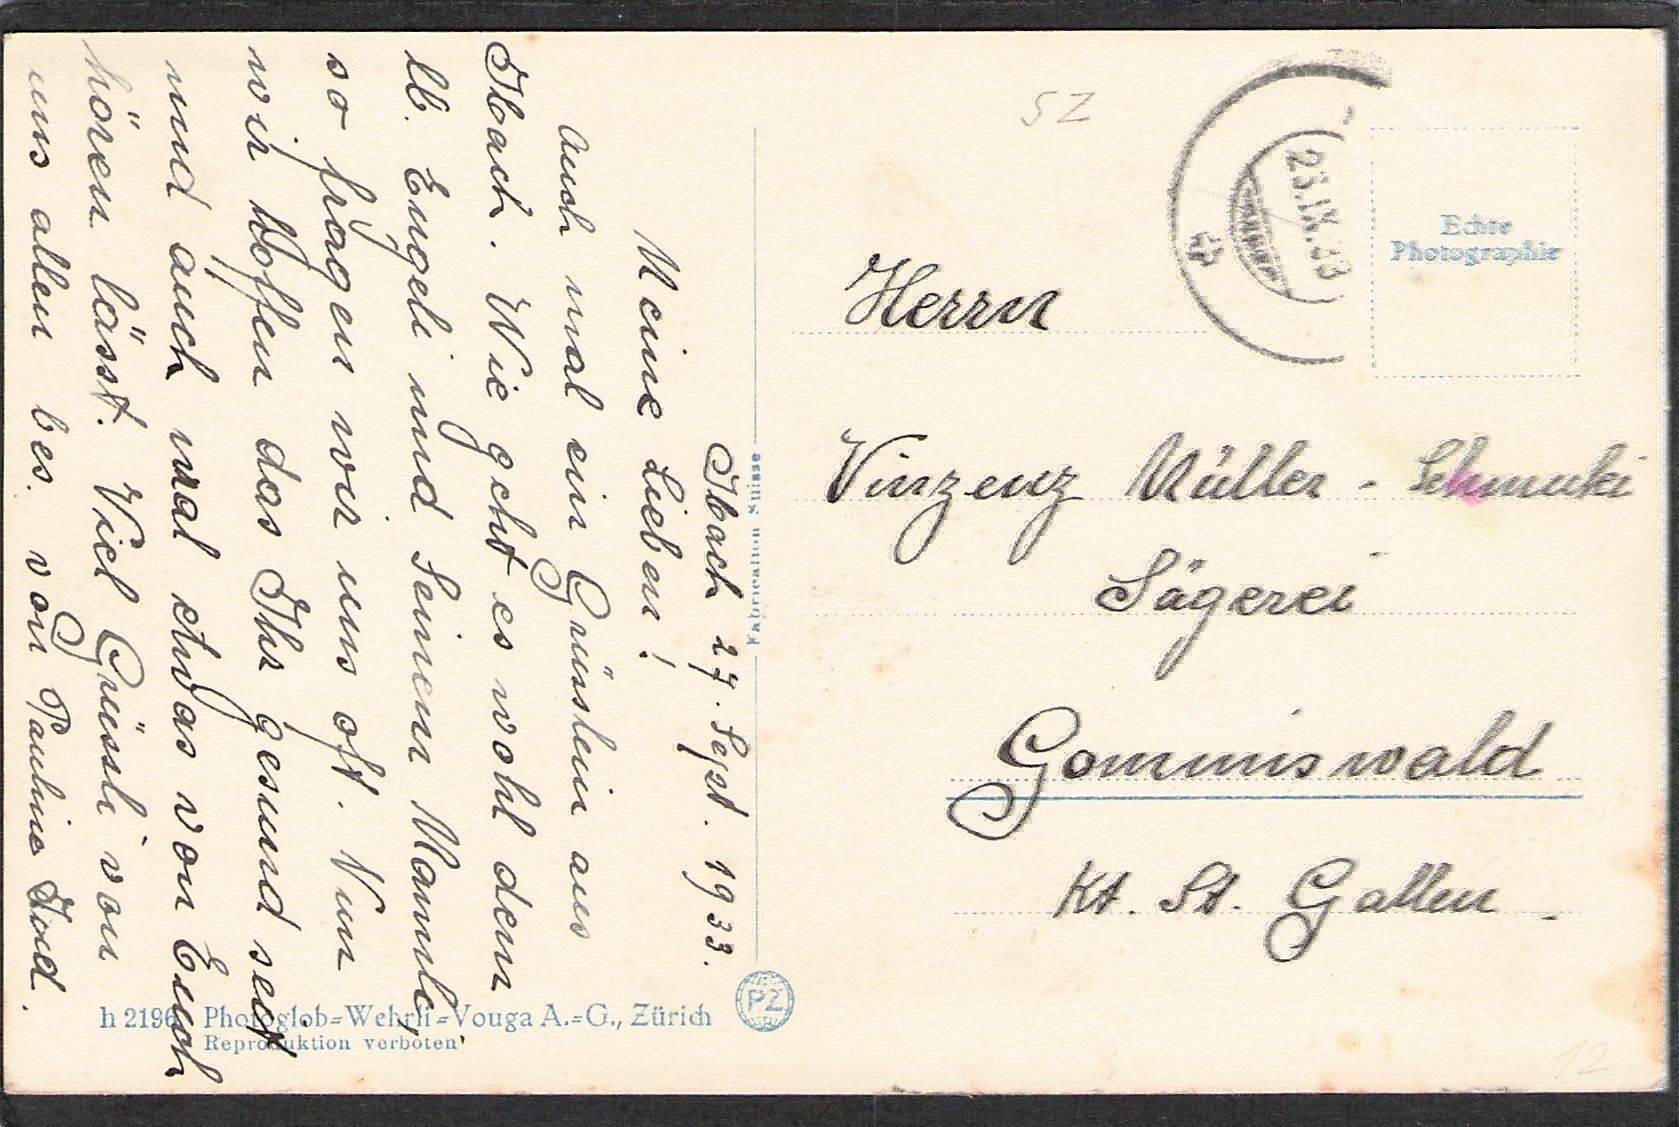 Ibach 27. Sept. 1933.
Meine Lieben!
Auch mal ein Grüsslein aus
Ibach. Wie geht es wohl dem
lb. Engeli und Seinem Mamele,
so fragen wir uns oft. Nun
wir hoffen das Ihr gesund seit
und auch mal etwas von Euch
hören lässt. Viel Grüssli von
uns allen bes. von Pauline
SZ
23.IX.33
Echte
Photographie
Herrn
Vinzenz Müller - Schmuki
Sägerei
Gommiswald
Kt. St. Gallen
Fabrication Suisse
PZ
h 2196 Photoglob=Wehrli=Vouga A.=G., Zürich
Reproduktion verboten
12